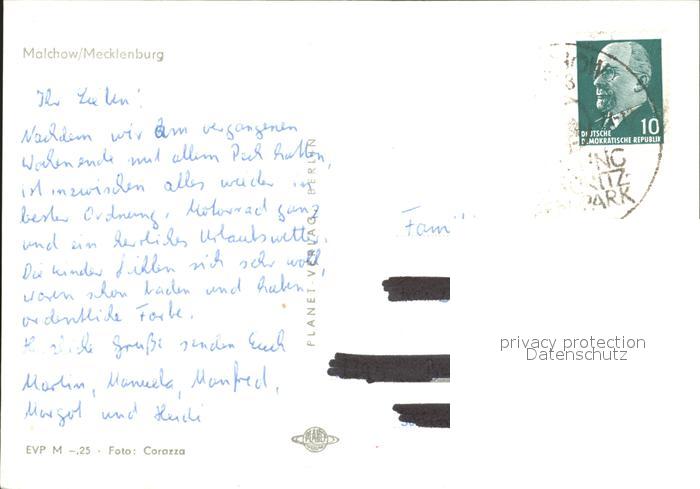 Malchow/Mecklenburg
Ihr Lieben!
Nachdem wir am vergangenen
Wochenende mit allem Pech hatten,
ist inzwischen alles wieder in
bester Ordnung. Motorrad ganz
und ein herrliches Urlaubswetter.
Die Kinder fühlen sich sehr wohl,
waren schon baden und haben
ordentliche Farbe.
Herzliche Grüße senden Euch
Martin, Manuela, Manfred,
Margot und Heidi
EVP M –.25 · Foto: Corazza
PLANET-VERLAG BERLIN
PLANET
10
DEUTSCHE
DEMOKRATISCHE REPUBLIK
PARK
Fami
privacy protection
Datenschutz